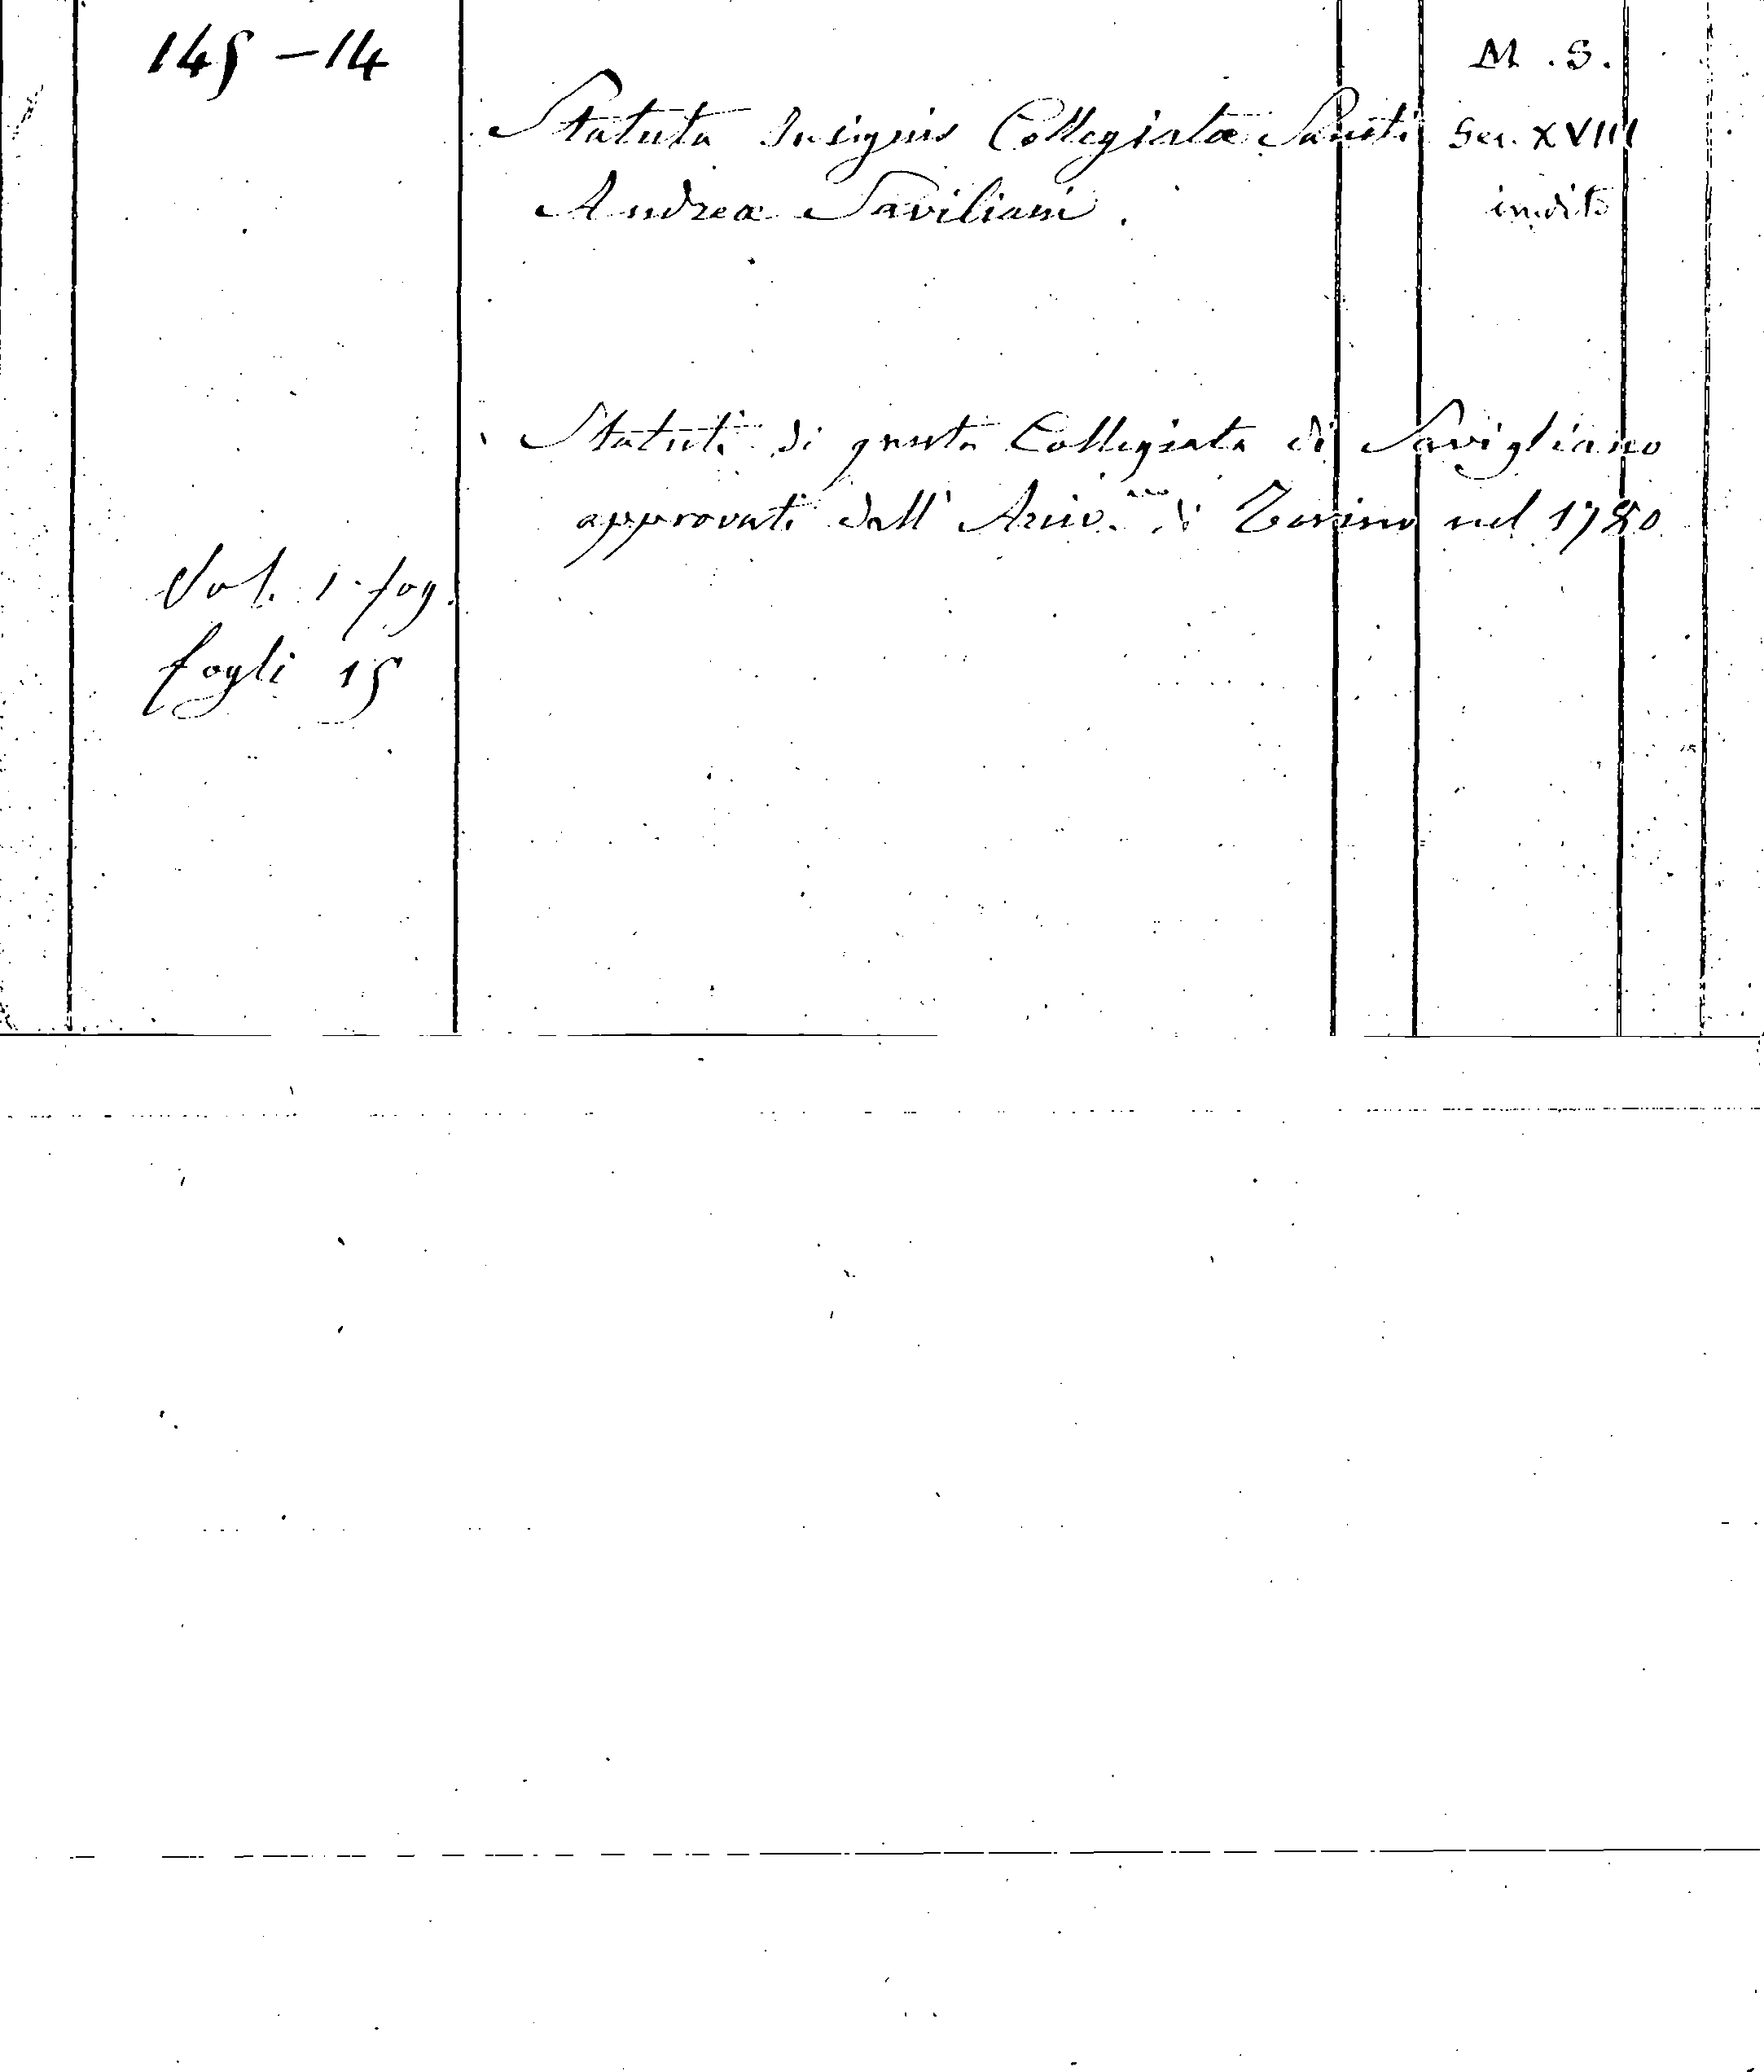 145 - 14
M. S.
Statuta Insignis Collegiatæ Sancti
Sec. XVIII
Andreæ Saviliani.
inedito
Statuti di questa Collegiata di Savigliano
approvati dall' Arciv.mo di Torino nel 1780
Vol. 1. fog.
fogli 15